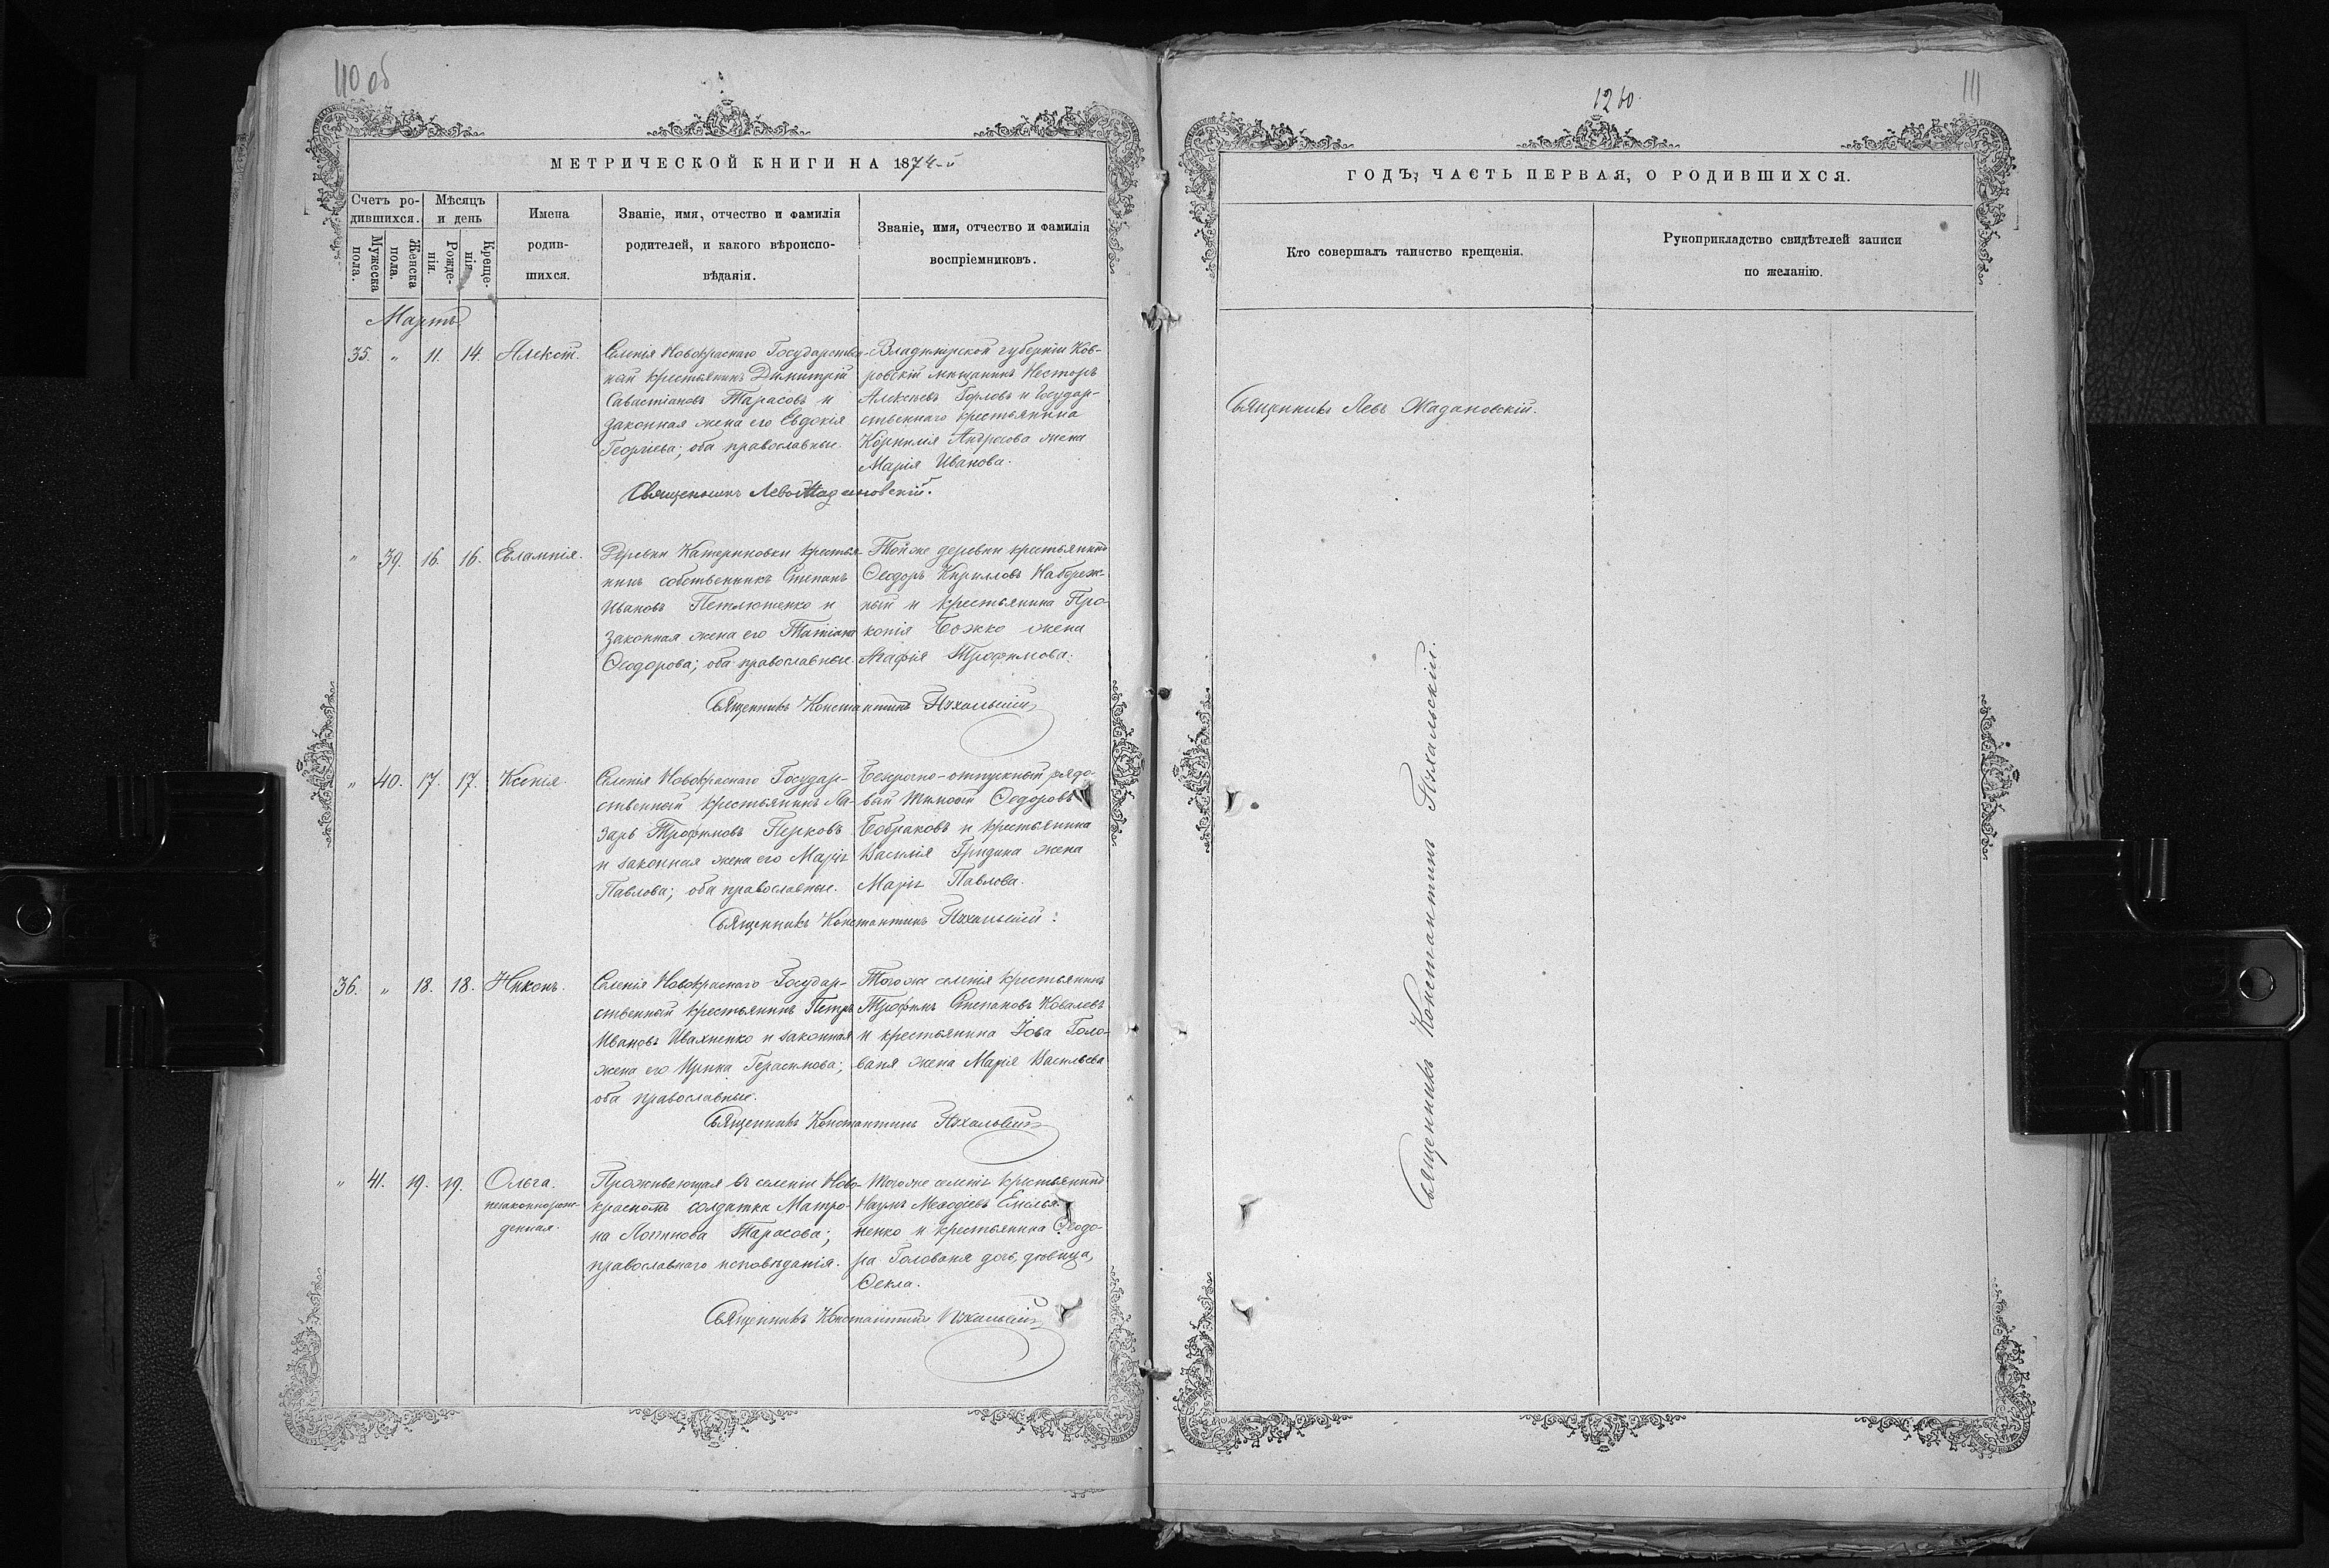 110 об
МЕТРИЧЕСКОЙ КНИГИ НА 1874-й
Счетъ ро-
дившихся.
Мужеска
пола.
Женска
пола.
Мѣсяцъ
и день
Рожде-
нія.
Креще-
нія.
Имена
родив-
шихся.
Званіе, имя, отчество и фамилія
родителей, и какого вѣроиспо-
вѣданія.
Званіе, имя, отчество и фамилія
воспріемниковъ.
Мартъ
35. " 11. 14. Алексѣй.
Селенія Новокраснаго Государствен-
ный крестьянинъ Димитрій
Савастіановъ Тарасовъ и
законная жена его Евдокія
Георгіева; оба православные.
Владимірской губерніи Ков-
ровскій мѣщанинъ Несторъ
Алексѣевъ Горловъ и Государ-
ственнаго крестьянина
Корнилія Андросова жена
Марія Иванова.
Священникъ Левъ Жадановскій.
" 39. 16. 16. Евлампія.
Деревни Катериновки крестья-
нинъ собственникъ Степанъ
Ивановъ Петлюченко и
законная жена его Татіана
Ѳеодорова; оба православные.
Той же деревни крестьянинъ
Ѳеодоръ Кирилловъ Набереж-
ный и крестьянина Про-
копія Божко жена
Агафія Трофимова.
Священникъ Константинъ Пѣхальскій
" 40. 17. 17. Ксенія.
Селенія Новокраснаго Государ-
ственный крестьянинъ Ла-
зарь Трофимовъ Перковъ
и законная жена его Марія
Павлова; оба православные.
Безсрочно-отпускный рядо-
вый Тимоѳей Ѳедоровъ
Бобраковъ и крестьянина
Василія Гридина жена
Марія Павлова.
Священникъ Константинъ Пѣхальскій.
36. " 18. 18. Никонъ.
Селенія Новокраснаго Государ-
ственный крестьянинъ Петръ
Ивановъ Ивахненко и законная
жена его Ирина Герасимова;
оба православные.
Того же селенія крестьянинъ
Трофимъ Степановъ Ковалевъ
и крестьянина Іова Голо-
ваня жена Марія Васильева
Священникъ Константинъ Пѣхальскій
" 41. 19. 19. Ольга.
незаконнорож-
денная.
Проживающая въ селеніи Ново-
красномъ солдатка Матро-
на Логинова Тарасова;
православнаго исповѣданія.
Того же селенія крестьянинъ
Наумъ Меѳодіевъ Емелья-
ненко и крестьянина Ѳеодо-
ра Голованя дочь, дѣвица,
Ѳекла.
Священникъ Константинъ Пѣхальскій
1260.
111
ГОДЪ, ЧАСТЬ ПЕРВАЯ, О РОДИВШИХСЯ.
Кто совершалъ таинство крещенія.
Рукоприкладство свидѣтелей записи
по желанію.
Священникъ Левъ Жадановскій.
Священникъ Константинъ Пѣхальскій.